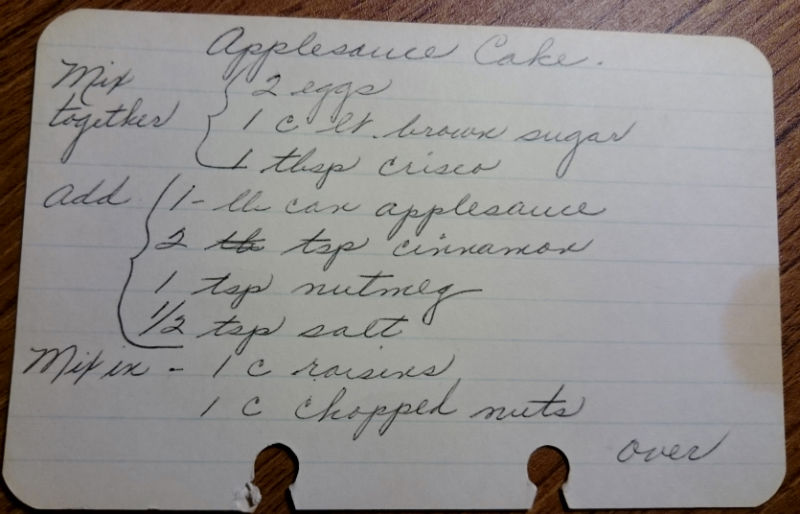 Applesauce Cake.
Mix together
2 eggs
1 c lt. brown sugar
1 tbsp crisco
add
1-lb can applesauce
2 tb tsp cinnamon
1 tsp nutmeg
1/2 tsp salt
Mix in - 1 c raisins
1 c chopped nuts
over